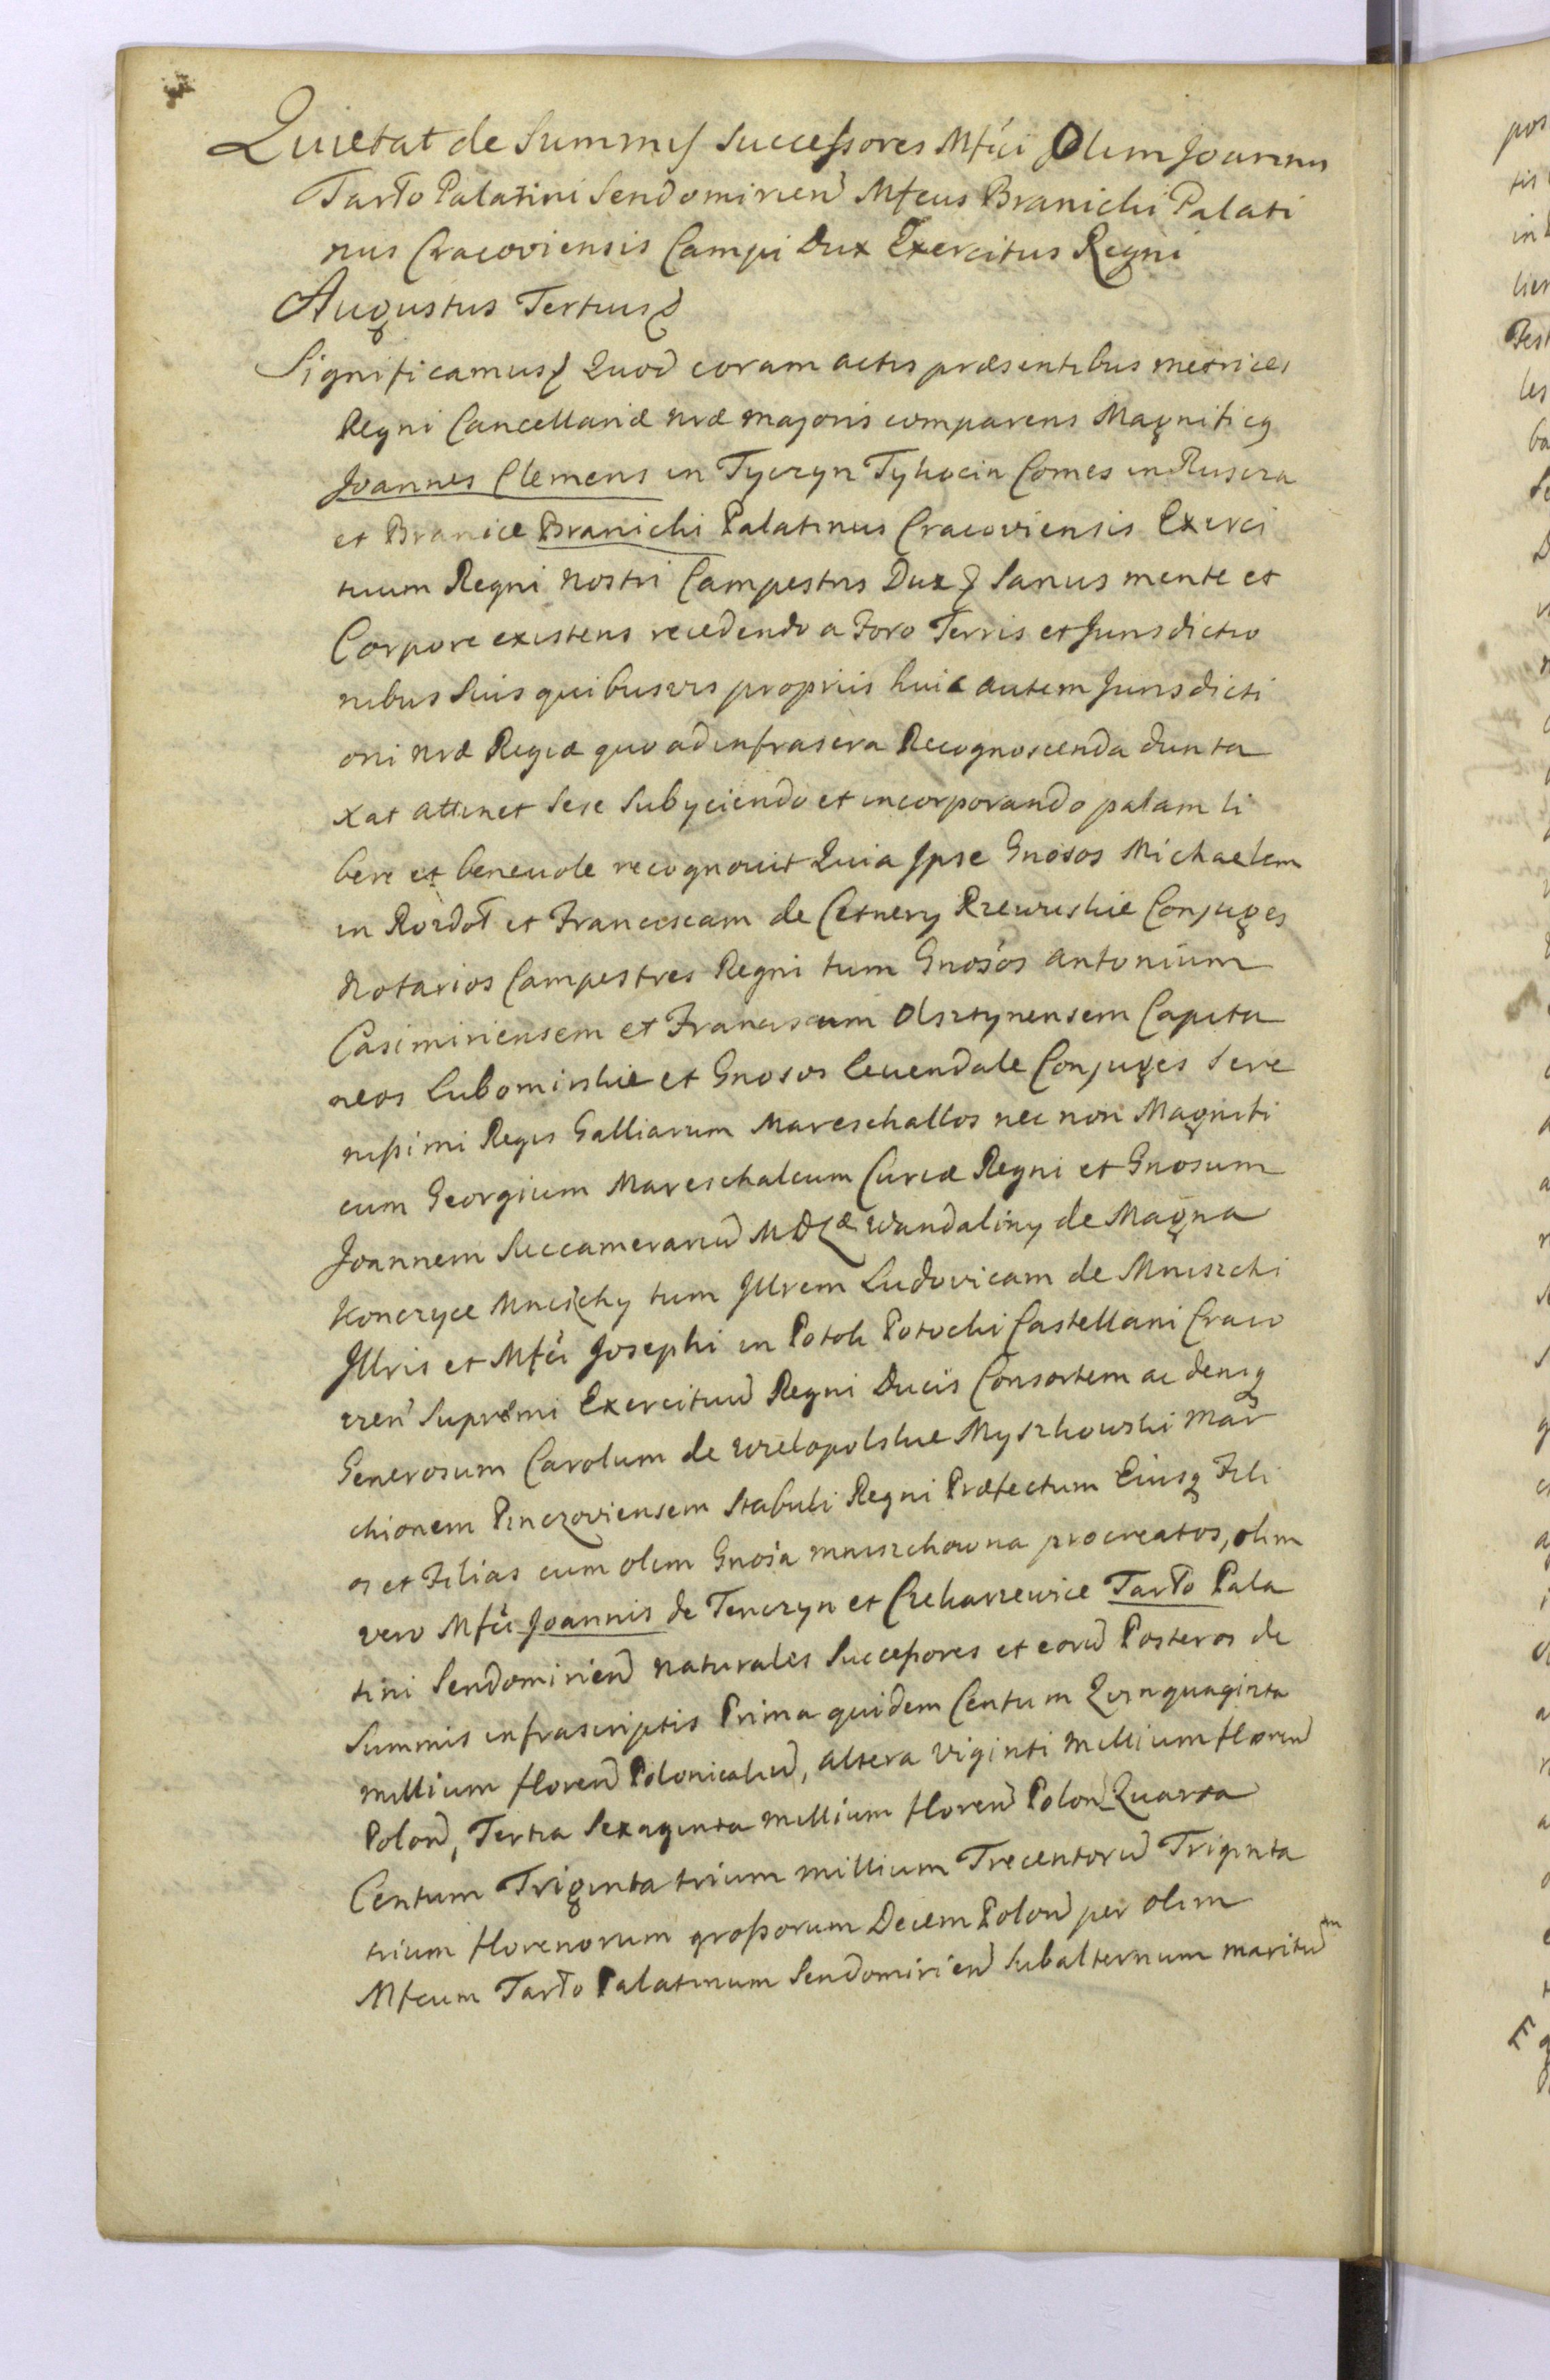 Quietat de Summis Successores Mfci Olim Joannis
Tarło Palatini Sendomirien Mfcus Branicki Palati
nus Cracoviensis Campi Dux Exercitus Regni
Augustus Tertius
Significamus Quod coram actis præsentibus metrices
Regni Cancellariæ nræ majoris comparens Magnificq
Joannes Clemens in Tyczyn Tykocin Comes in Ruscza
et Branice Branicki Palatinus Cracoviensis Exerci
tuum Regni nostri Campestris Dux Sanus mente et
Corpore existens recedendo a Foro Terris et Jurisdictio
nibus suis quibusvis propriis huic autem Jurisdicti
oni nræ Regiæ quo ad infrascra Recognoscenda dunta
xat attinet sese subyciendo et incorporando palam li
bere et beneuole recognouit Quia Ipse Gnosos Michaelem
in Rozdoł et Franciscam de Cetnery Rzewuskie Conjuges
Notarios Campestres Regni tum Gnosos Antonium
Casimiriensem et Franciscum Olsztynensem Capita
neos Lubomirskie et Gnosos Leuendale Conjuges Sere
nissimi Regis Galliarum Mareschallos nec non Magnifi
cum Georgium Mareschalcum Curiæ Regni et Gnosum
Joannem Succamerariu MDLæ Wandaliny de Magna
Konczyce Mniszchy tum Jllrem Ludovicam de Mniszchi
Jllris et Mfci Josephi in Potok Potocki Castellani Craco
vien Supremi Exercituu Regni Ducis Consortem ac deniq
Generosum Carolum de Wielopolskie Myszkowski Mar
chionem Pinczoviensem Stabuli Regni Præfectum Eiusq Fili
os et Filias cum olim Gnosa Mniszchowna procreatos, olim
vero Mfci Joannis de Tenczyn et Czekarzewice Tarło Pala
tini Sendomirien naturales Successores et eoru Posteros de
Summis infrascriptis Prima quidem Centum Quinquaginta
millium floren Polonicaliu, altera Viginti Millium floren
Polon, Tertia Sexaginta millium floren Polon Quarta
Centum Triginta trium millium Trecentoru Triginta
trium florenorum grossorum Decem Polon per olim
Mfcum Tarło Palatinum Sendomirien Subalternum maritum